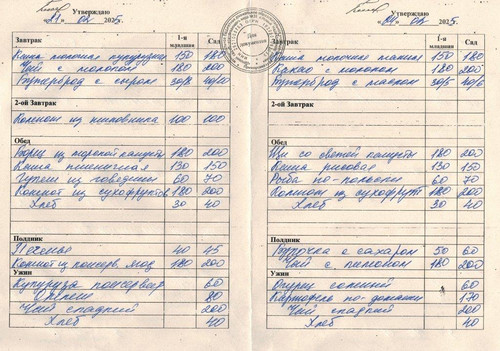 Утверждаю
2025
Завтрак 1-я младшая Сад
Каша молочная кукурузная 150 180
Чай с молоком 180 200
Бутерброд с сыром 30/8 40/10
2-ой Завтрак
Компот из шиповника 100 100
Обед
Борщ из морской капусты 180 200
Каша пшеничная 130 150
Гуляш из говядины 60 70
Компот из сухофруктов 180 200
Хлеб 30 40
Полдник
Печенье 40 45
Компот из консерв. ягод 180 200
Ужин
Кукуруза консервир 60
Омлет 80
Чай сладкий 200
Хлеб 40
Утверждаю
2025
Завтрак 1-я младшая Сад
Каша молочная 150 180
Какао с молоком 180 200
Бутерброд с маслом 30/5 40/6
2-ой Завтрак
Обед
Щи со свежей капусты 180 200
Каша рисовая 130 150
Рыба по-польски 60 70
Компот из сухофрукт 180 200
Хлеб 30 40
Полдник
Булочка с сахаром 50 60
Чай с лимоном 180 200
Ужин
Огурец соленый 60
Картофель по-домашн 170
Чай сладкий 200
Хлеб 40